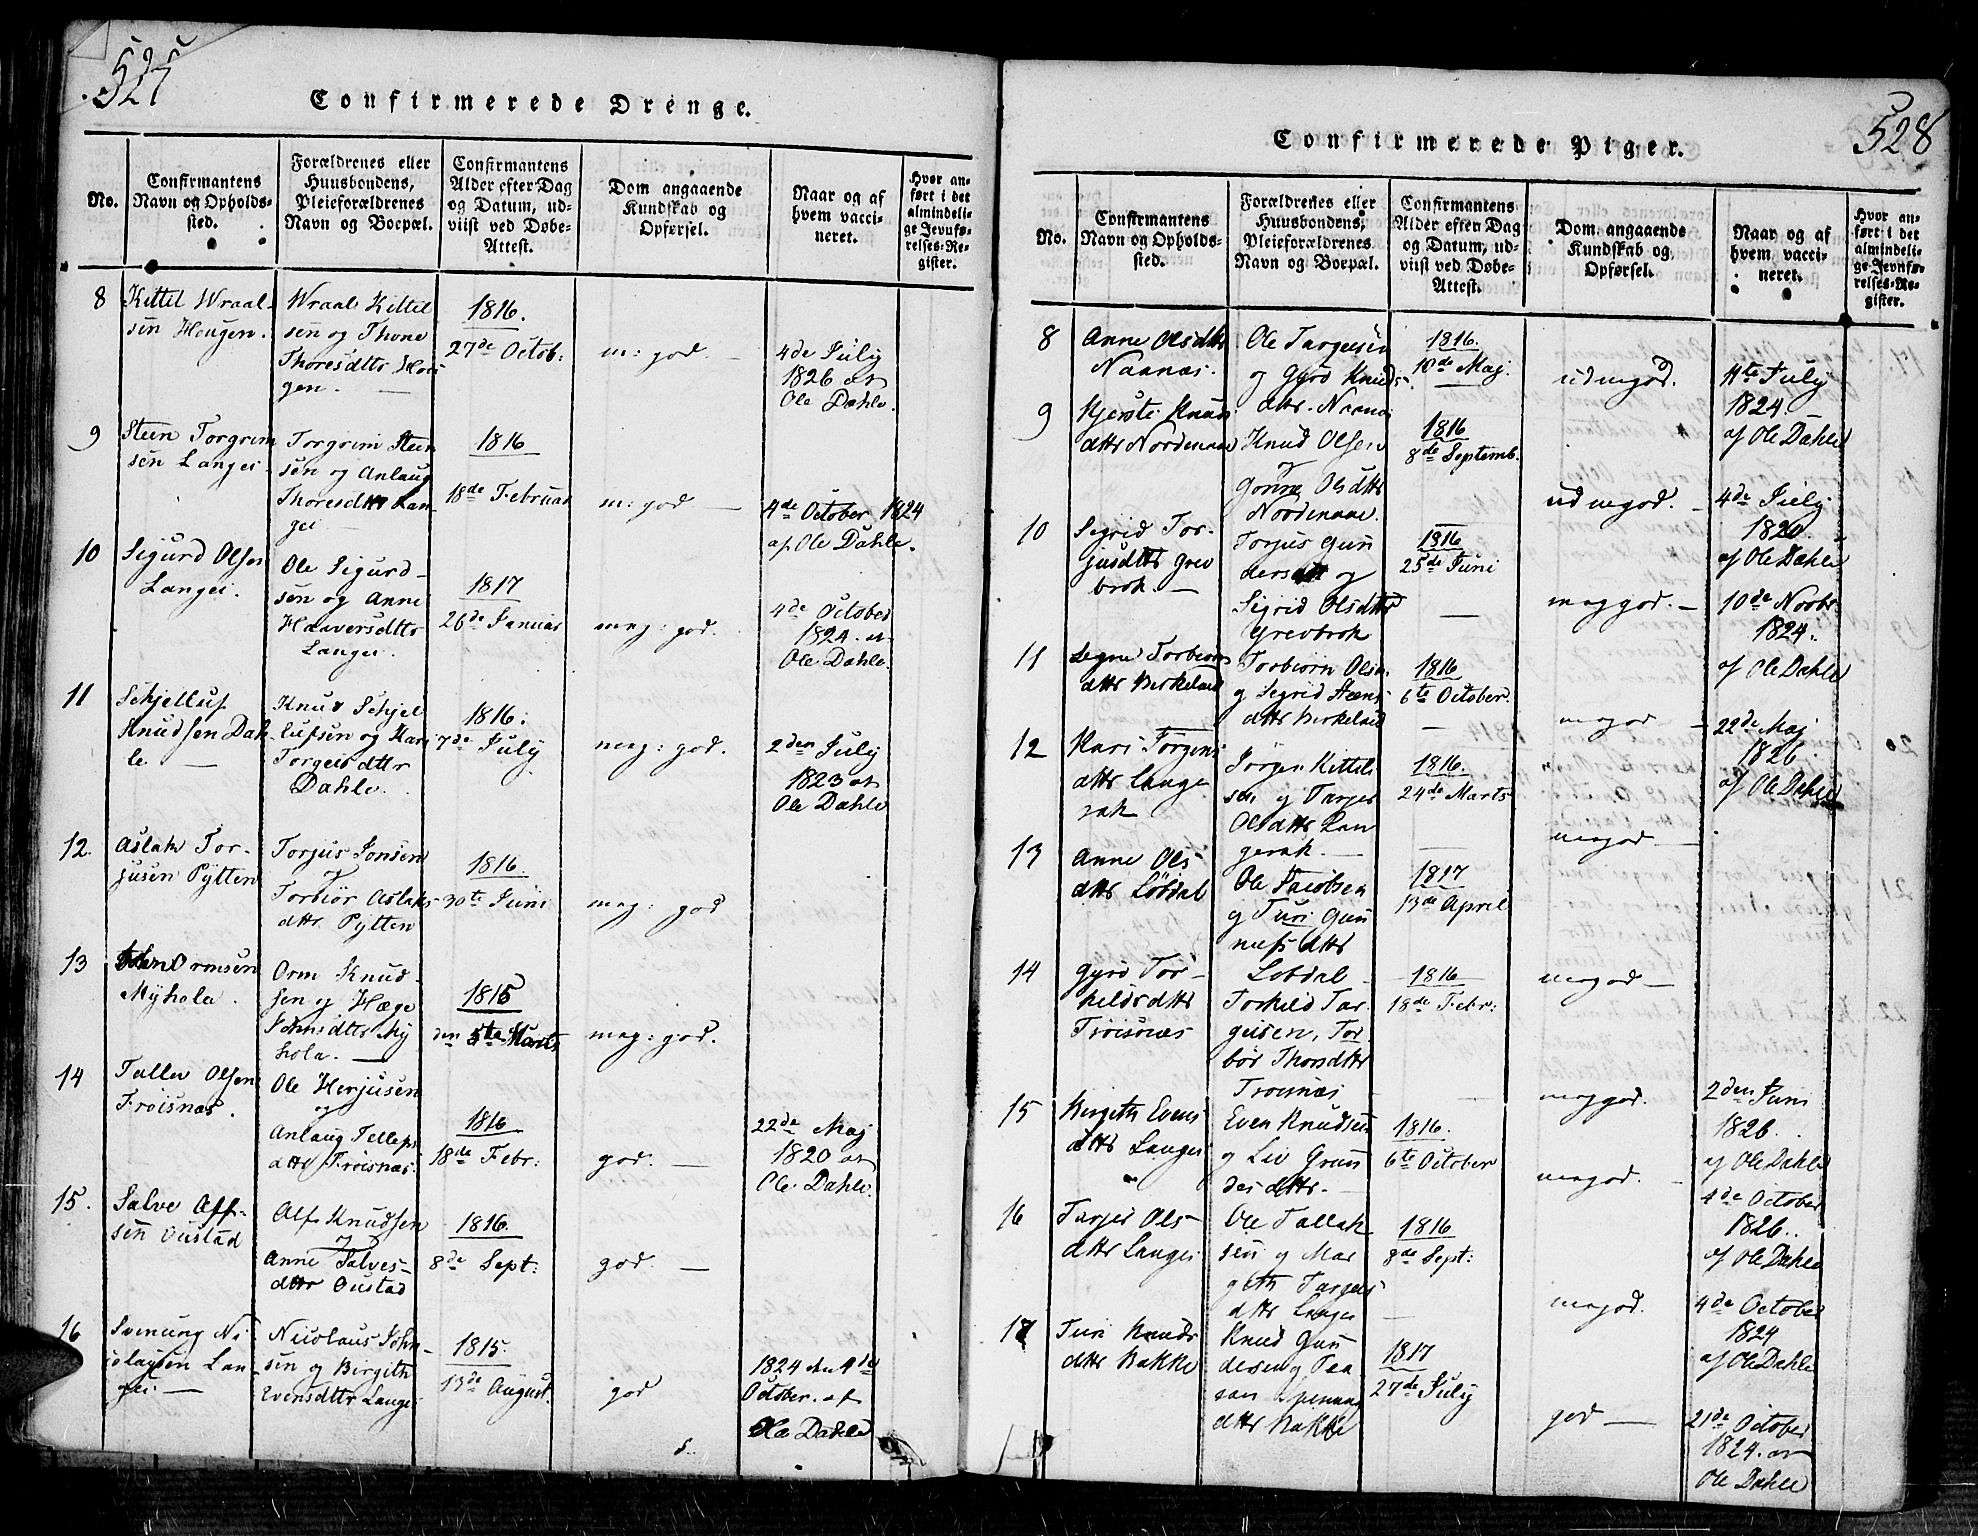 525
527
Confirmerede Drenge.
No.
Confirmantens
Navn og Opholds-
sted.
Forældrenes eller
Huusbondens,
Pleieforældrenes
Navn og Boepæl.
Confirmantens
Alder efter Dag
og Datum, ud-
viist ved Døbe-
Attest.
Dom angaaende
Kundskab og
Opførsel.
Naar og af
hvem vacci-
neret.
Hvor an-
ført i det
almindeli-
ge Jevnfø-
relses-Re-
gister.
8
Kittil Wraal-
sen Hougen.
Wraal Kittel
sen og Thone
Thoresdttr Hou
gen. —
1816.
27de Octob:
m: god. —
4de July
1826 af
Ole Dahle.
9
Steen Torgrim
sen Langei.
Torgrim Steen
sen og Anlaug
Thoresdttr Lan-
gei —
1816
18de Februar
m: god —
4de October 1824
af Ole Dahle.
10
Sigurd Olsen
Langei.
Ole Sigurd-
sen og Anne
Haaversdttr
Langei.
1817
26de Januar
meg: god.
4de October
1824. af
Ole Dahle.
11
Schjelluf
Knudsen Dah-
le —
Knud Schjel
lufsen og Kari
Torgeisdttr
Dahle.
1816.
7de July
meg: god.
2den July
1823 af
Ole Dahle
12.
Aslak Tor-
jusen Pytten
Torjus Jonsen
og
Torbiør Aslaks
dttr Pytten
1816
30te Juni
meg: god
13
Ormsen
Myhola.
Orm Knud-
sen og Hæge
Johnsdttr My
hola. —
1815
den 5te Marts
meg: god.
14
Tallev Olsen
Frøisnæs.
Ole Herjusen
og
Anlaug Telleps
dttr Frøisnæs.
1816
18de Febr:
god. —
22de Maj
1820 af
Ole Dahle.
15.
Salve Alf-
sen Oustad
Alf Knudsen
og
Anne Salves-
dttr Oustad
1816.
8de Sept:
god. —
16
Svenung Ni
colaysen Lan-
gei —
Nicolaus John-
sen og Birgith
Evensdttr Lange
1815.
13de August.
god
1824 den 4de
October. af
Ole Dahle
528
Confirmerede Piger.
No.
Confirmantens
Navn og Opholds-
sted.
Forældrenes eller
Huusbondens,
Pleieforældrenes
Navn og Boepæl.
Confirmantens
Alder efter Dag
og Datum, ud-
viist ved Døbe-
Attest.
Dom angaaende
Kundskab og
Opførsel.
Naar og af
hvem vacci-
neret.
Hvor an-
ført i det
almindeli-
ge Jevnfø-
relses-Re-
gister.
8
Anne Olsdttr
Naanæs.
Ole Targeisen
og Gyro Knuds-
dttr. Naanæs
1816.
10de Maj.
udmgod.
11te July
1824. —
af Ole Dahle
9
Kjersti Knuds
dttr Nordenaae
Knud Olsen
og
Gonne Olsdttr
Nordenaae.
1816
8de Septemb.
udmgod. —
4de July
1820.
af Ole Dahle
10
Segrid Tor-
jusdttr Grev
brok. —
Torjus Gun
dersen og
Sigrid Olsdttr
Grevbrok
1816
25de Juni
meggod. —
10de Novbr.
1824.
af Ole Dahle
11
Segne Torbiorns
dttr Birkeland
Torbiørn Olsen
og Segrid Steens
dttr Birkeland
1816
6te October.
megod —
22de Maj
1826
af Ole Dahle
12
Kari Jørgens
dttr Lange
rak
Jørgen Kittels
sen og Targer
Olsdttr Lan
gerak. —
1816.
24de Marts
megod —
13
Anne Ols
dttr Løbdal
Ole Jacobsen
og Turi Gun
nufsdttr
Løbdal
1817
13de April
megod —
14
Gyro Tor-
kildsdttr
Frøisnæs
Torkild Tar
geisen, Tor
bør Thorsdttr
Froisnæs
1816
18de Febr:
meggod.
2den Juni
1826.
af Ole Dahle
15
Birgith Evens
dttr Langei
Even Knudsen
og Liv Grun
desdttr. —
1816.
6te October
megod. —
4de October
1826.
af Ole Dahle
16
Tarjer Ols-
dttr Langei
Ole Tallak
sen og Mar
geth Targeis
dttr Langei
1816
8de Sept:
megod.
4de October
1824
af Ole Dahle
17
Turi Knuds
dttr Bakke
Knud Gun
desen og
dttr Bakke
1817
27de July
god —
21de October
1824. af
Ole Dahle